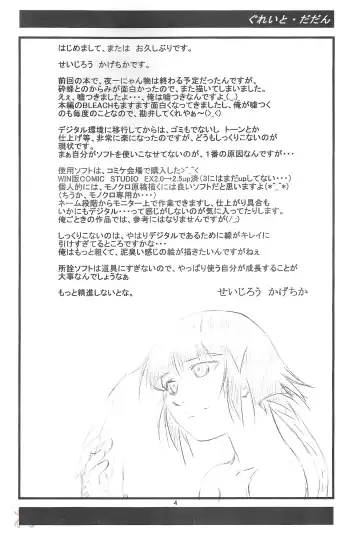 ぐれいと・だだん
はじめまして、または お久しぶりです。
せいじろう かげちかです。
前回の本で、夜一にゃん物は終わる予定だったんですが、
砕蜂とのからみが面白かったので、また描いてしまいました。
ええ、嘘つきましたよ・・・、俺は嘘つきなんですよ(._.)
本編のBLEACHもますます面白くなってきましたし、俺が嘘つく
のも毎度のことなので、勘弁してくれやぁ〜(>_<)
デジタル環境に移行してからは、ゴミもでないし トーンとか
仕上げ等、非常に楽になったんですが、どうもしっくりこないのが
現状です。
まぁ自分がソフトを使いこなせてないのが、1番の原因なんですが・・・
使用ソフトは、コミケ会場で購入した>^_^<
WIN版COMIC STUDIO EX2.0→2.5up済(3にはまだupしてない・・・)
個人的には、モノクロ原稿描くには良いソフトだと思いますよ(*^_^*)
(ちうか、モノクロ専用か・・・)
ネーム段階からモニター上で作業できますし、仕上がり具合も
いかにもデジタル・・・って感じがしないのが気に入ってたりします。
俺ごときの作品では、参考にはなりませんですが(/_;)
しっくりこないのは、やはりデジタルであるために線がキレイに
引けすぎてるところですかな・・・
俺はもっと粗くて、泥臭い感じの絵が描きたいんですがねぇ
所詮ソフトは道具にすぎないので、やっぱり使う自分が成長することが
大事なんでしょうなぁ
もっと精進しないとな。
せいじろう かげちか
4